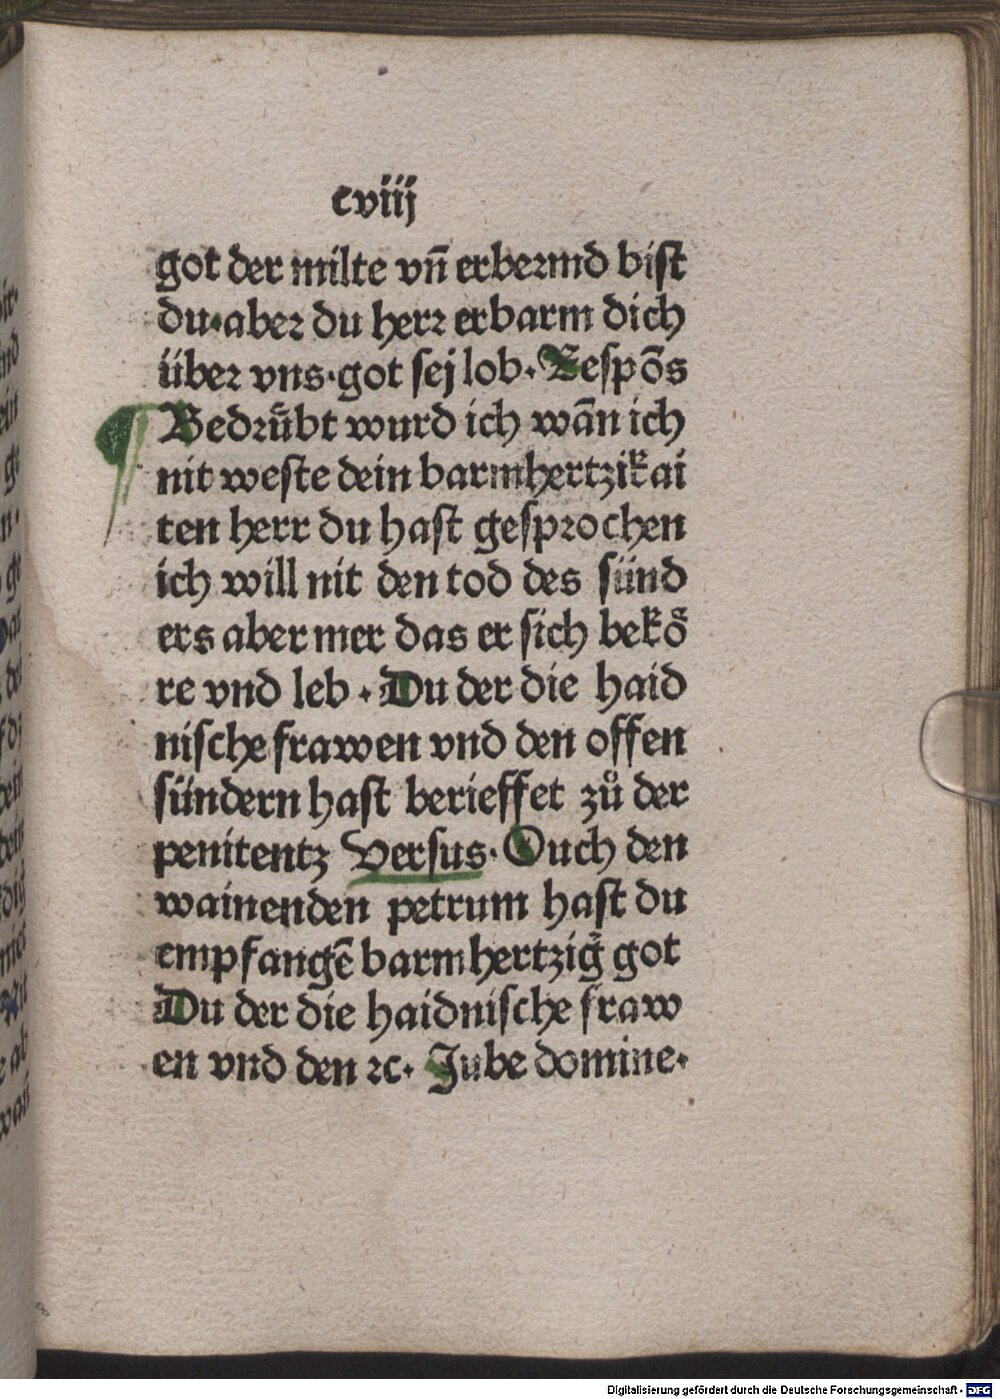 cviij
got der milte vn̄ erbermd bist
du·aber du herr erbarm dich
über vns·got sej lob·Respōs
Bedrůbt wurd ich wān ich
nit weste dein barmhertzikai
ten herr du hast gesprochen
ich will nit den tod des sünd
ers aber mer das er sich bekoͤ
re vnd leb·Du der die haid
nische frawen vnd den offen
sündern hast berieffet zů der
penitentz Versus·Ouch den
wainenden petrum hast du
empfangē barmhertzig̃ got
Du der die haidnische fraw
en vnd den ꝛc· Jube domine·
Digitalisierung gefördert durch die Deutsche Forschungsgemeinschaft - DFG